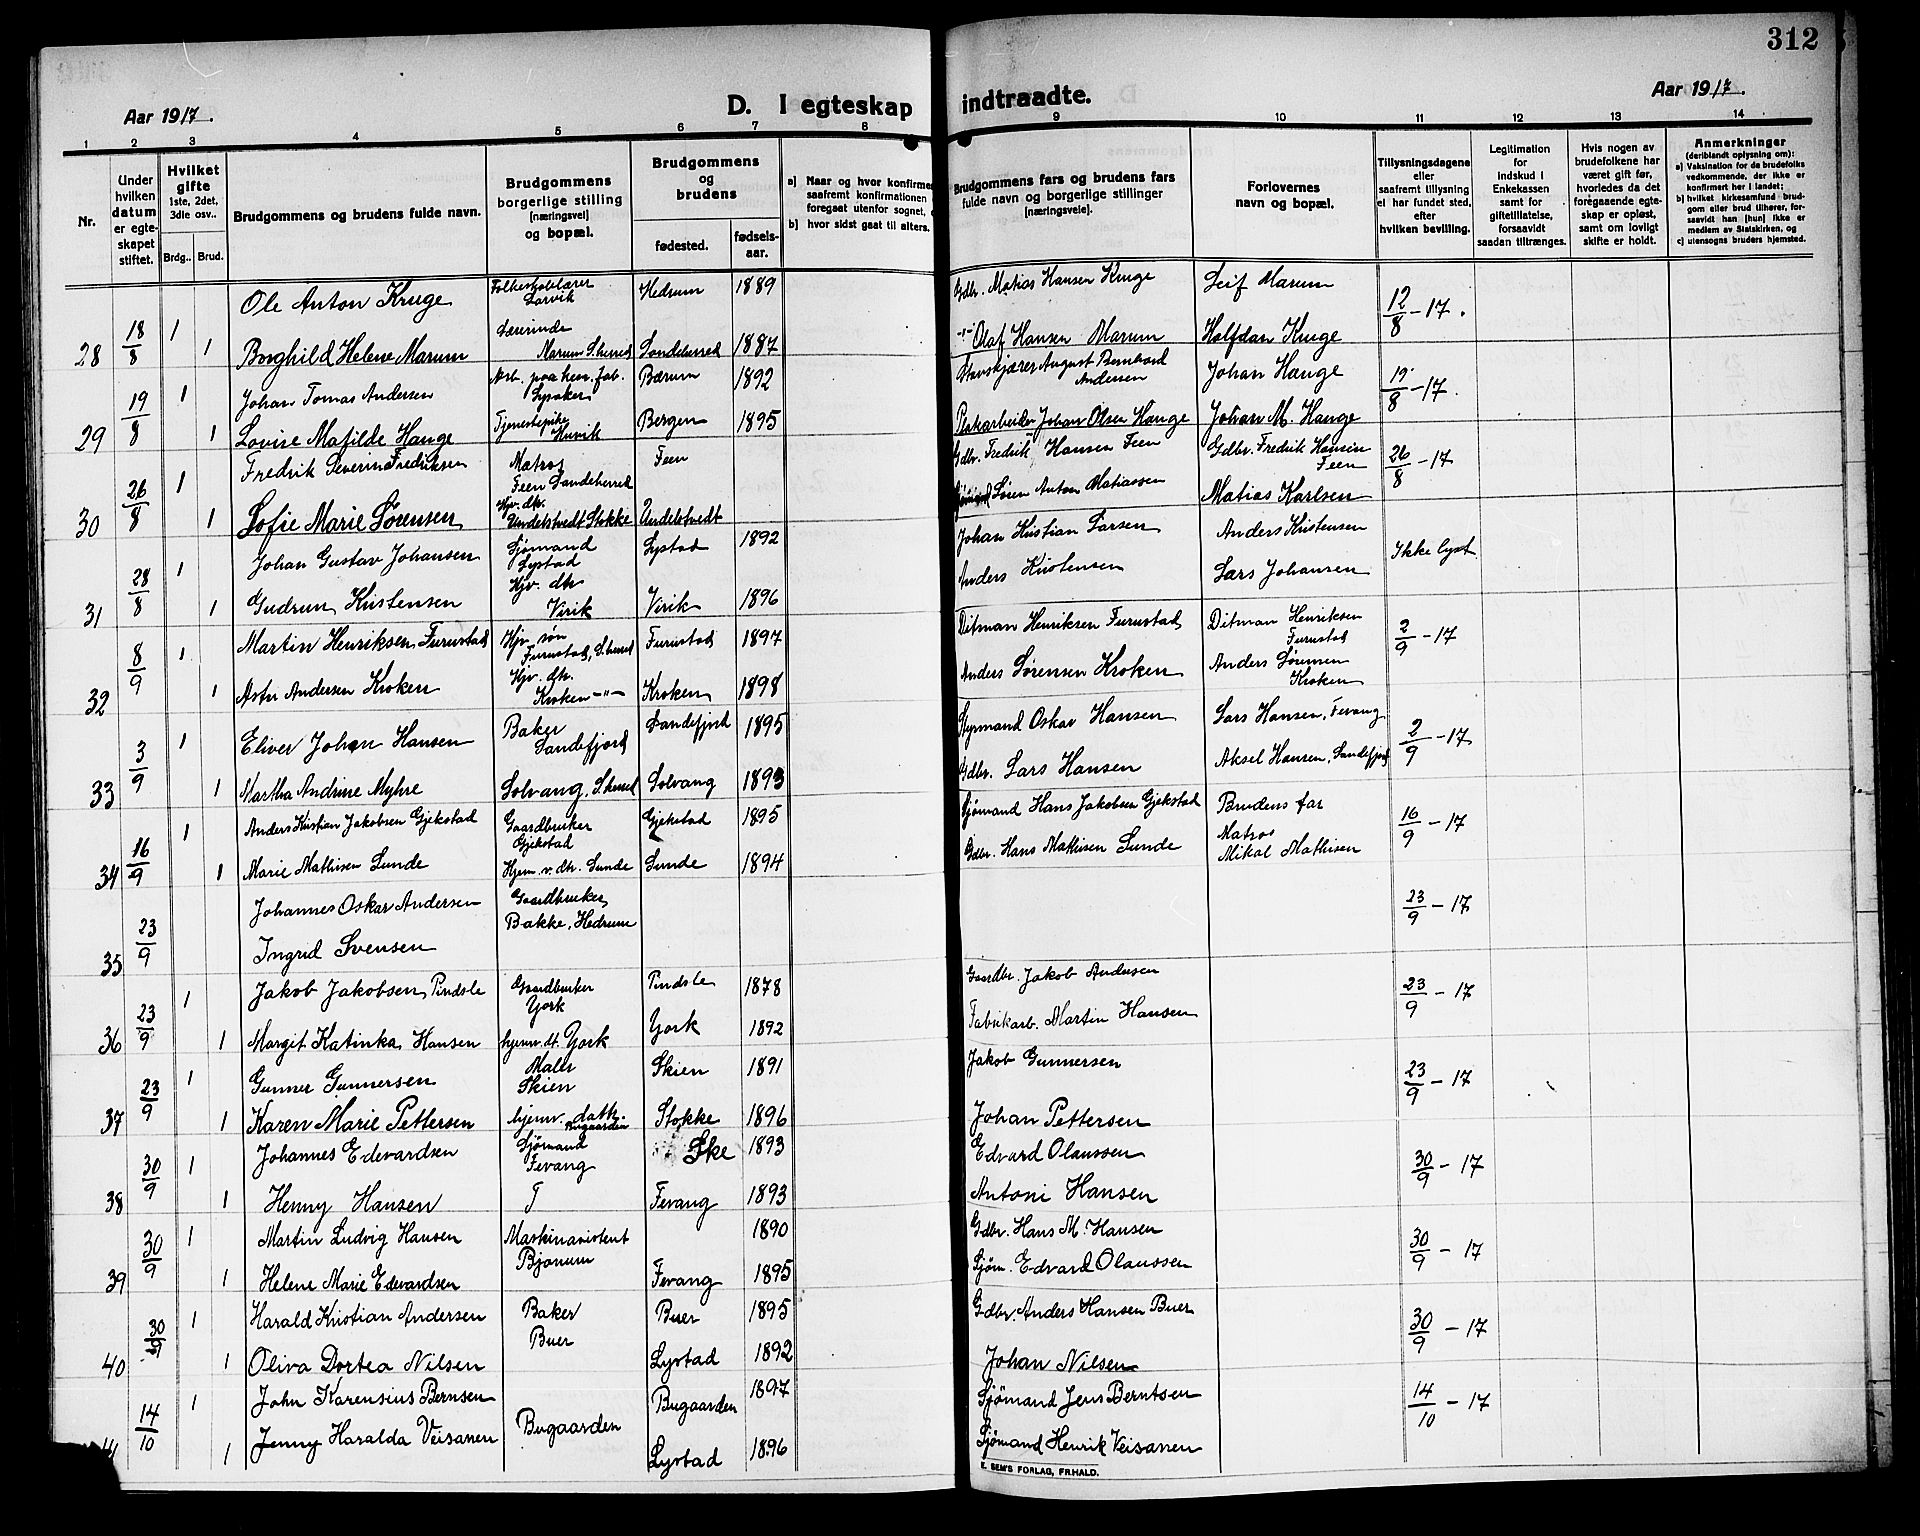 312
Aar 1917.
D. I egteskap indtraadte.
Aar 1917.
1 2 3 4 5 6 7 8 9 10 11 12 13 14
Nr.
Under hvilken datum er egteskapet stiftet.
Hvilket gifte 1ste, 2det, 3die osv..
Brdg.. Brud.
Brudgommens og brudens fulde navn.
Brudgommens borgerlige stilling (næringsvei) og bopæl.
Brudgommens og brudens
fødested. fødselsaar.
a) Naar og hvor konfirmer
saafremt konfirmationen
foregaaet utenfor sognet,
b) hvor sidst gaat til alters.
Brudgommens fars og brudens fars fulde navn og borgerlige stillinger (næringsveie).
Forlovernes navn og bopæl.
Tillysningsdagene eller saafremt tillysning ei har fundet sted, efter hvilken bevilling.
Legitimation for Indskud i Enkekassen samt for giftetilladelse, forsaavidt saadan tiltrænges.
Hvis nogen av brudefolkene har været gift før, hvorledes da det foregaaende egteskap er opløst, samt om lovligt skifte er holdt.
Anmerkninger (deriblandt oplysning om): a) Vaksination for de brudefolks vedkommende, der ikke er konfirmert her i landet; b) hvilket kirkesamfund brudgom eller brud tilhører, forsaavidt han [hun] ikke er medlem av Statskirken, og c) utensogns bruders hjemsted.
28 18/8 1 Ole Anton Kruge Folkeskolelærer Larvik Hedrum 1889 Gdbr. Matias Hansen Kruge Leif Marum 12/8 – 17.
1 Borghild Helene Marum Lærerinde Marum S.herred Sandeherred 1887 -"- Olaf Hansen Marum Halfdan Kruge
29 19/8 1 Johan Tomas Andersen Arb. paa kem. fab. Lysaker Bærum 1892 August Bernhard Andersen Johan Hauge 19/8 – 17.
1 Lovise Matilde Hauge Tjenestepike Bergen 1895 Johan Olsen Hauge Johan M. Hauge
30 26/8 1 Fredrik Severin Fredriksen Matros Feen Sandeherred Feen Gdbr. Fredrik Hansen Feen Gdbr. Fredrik Hansen Feen 26/8 – 17
1 Sofie Marie Sørensen Hjv. dtr. Undelstvedt Stokke Undelstvedt Søren Anton Matiassen Matias Karlsen
31 28/8 1 Johan Gustav Johansen Sjømand Lystad Lystad 1892 Johan Kristian Larsen Anders Kristensen Ikke lyst
1 Gudrun Kristensen Hjv. dtr. Virik Virik 1896 Anders Kristensen Lars Johansen
32 8/9 1 Martin Henriksen Furustad Hjv. søn Furustad, S.herred Furustad 1897 Ditman Henriksen Furustad Ditman Henriksen Furustad 2/9 – 17
1 Astri Andersen Kroken Hjv. dtr. Kroken -"- Kroken 1898 Anders Sørensen Kroken Anders Sørensen Kroken
33 3/9 1 Eliver Johan Hansen Baker Sandefjord Sandefjord 1895 Styrmand Oskar Hansen Lars Hansen, Fevang 2/9 – 17
1 Martha Andrine Myhre Solvang, S.herred Solvang 1893 Gdbr. Lars Hansen Aksel Hansen, Sandefjord
34 16/9 1 Anders Kristian Jakobsen Gjekstad Gaardbruker Gjekstad Gjekstad 1895 Sjømand Hans Jakobsen Gjekstad Brudens far 16/9 – 17
1 Marie Mathisen Sunde Hjem. v. dtr. Sunde Sunde 1894 Gdbr. Hans Mathisen Sunde Matros Mikal Mathisen
35 23/9 Johannes Oskar Andersen Gaardbruker Bakke, Hedrum 23/9 – 17
Ingrid Svensen
36 23/9 1 Jakob Jakobsen Pindsle Gaardbruker York Pindsle 1878 Gaardbr. Jakob Andersen 23/9 – 17
1 Margit Katinka Hansen hjemv. dt. York York 1892 Fabrikarb. Martin Hansen
37 23/9 1 Gunner Gunnersen Maler Skien Skien 1891 Jakob Gunnersen 23/9 – 17
1 Karen Marie Pettersen hjemv. datt. Bugaarden Stokke 1896 Johan Pettersen
38 30/9 1 Johannes Edevardsen Sjømand Fevang Ske 1893 Edvard Olaussen 30/9 – 17
1 Henny Hansen T Fevang 1893 Antoni Hansen
39 30/9 1 Martin Ludvig Hansen Maskinasistent Bjønum 1890 Gdbr. Hans M. Hansen 30/9 – 17
1 Helene Marie Edevardsen Fevang 1895 Sjøm. Edvard Olaussen
40 30/9 1 Harald Kristian Andersen Baker Buer Buer 1895 Gdbr. Anders Hansen Buer 30/9 – 17
1 Oliva Dortea Nilsen Lystad 1892 Johan Nilsen
14/10 1 John Karensius Bernsen Bugaarden Bugaarden 1897 Sjømand Jens Berntsen 14/10 – 17
1 Jenny Haralda Veisanen Lystad 1896 Sjømand Henrik Veisanen
E. SEM'S FORLAG, FR.HALD.